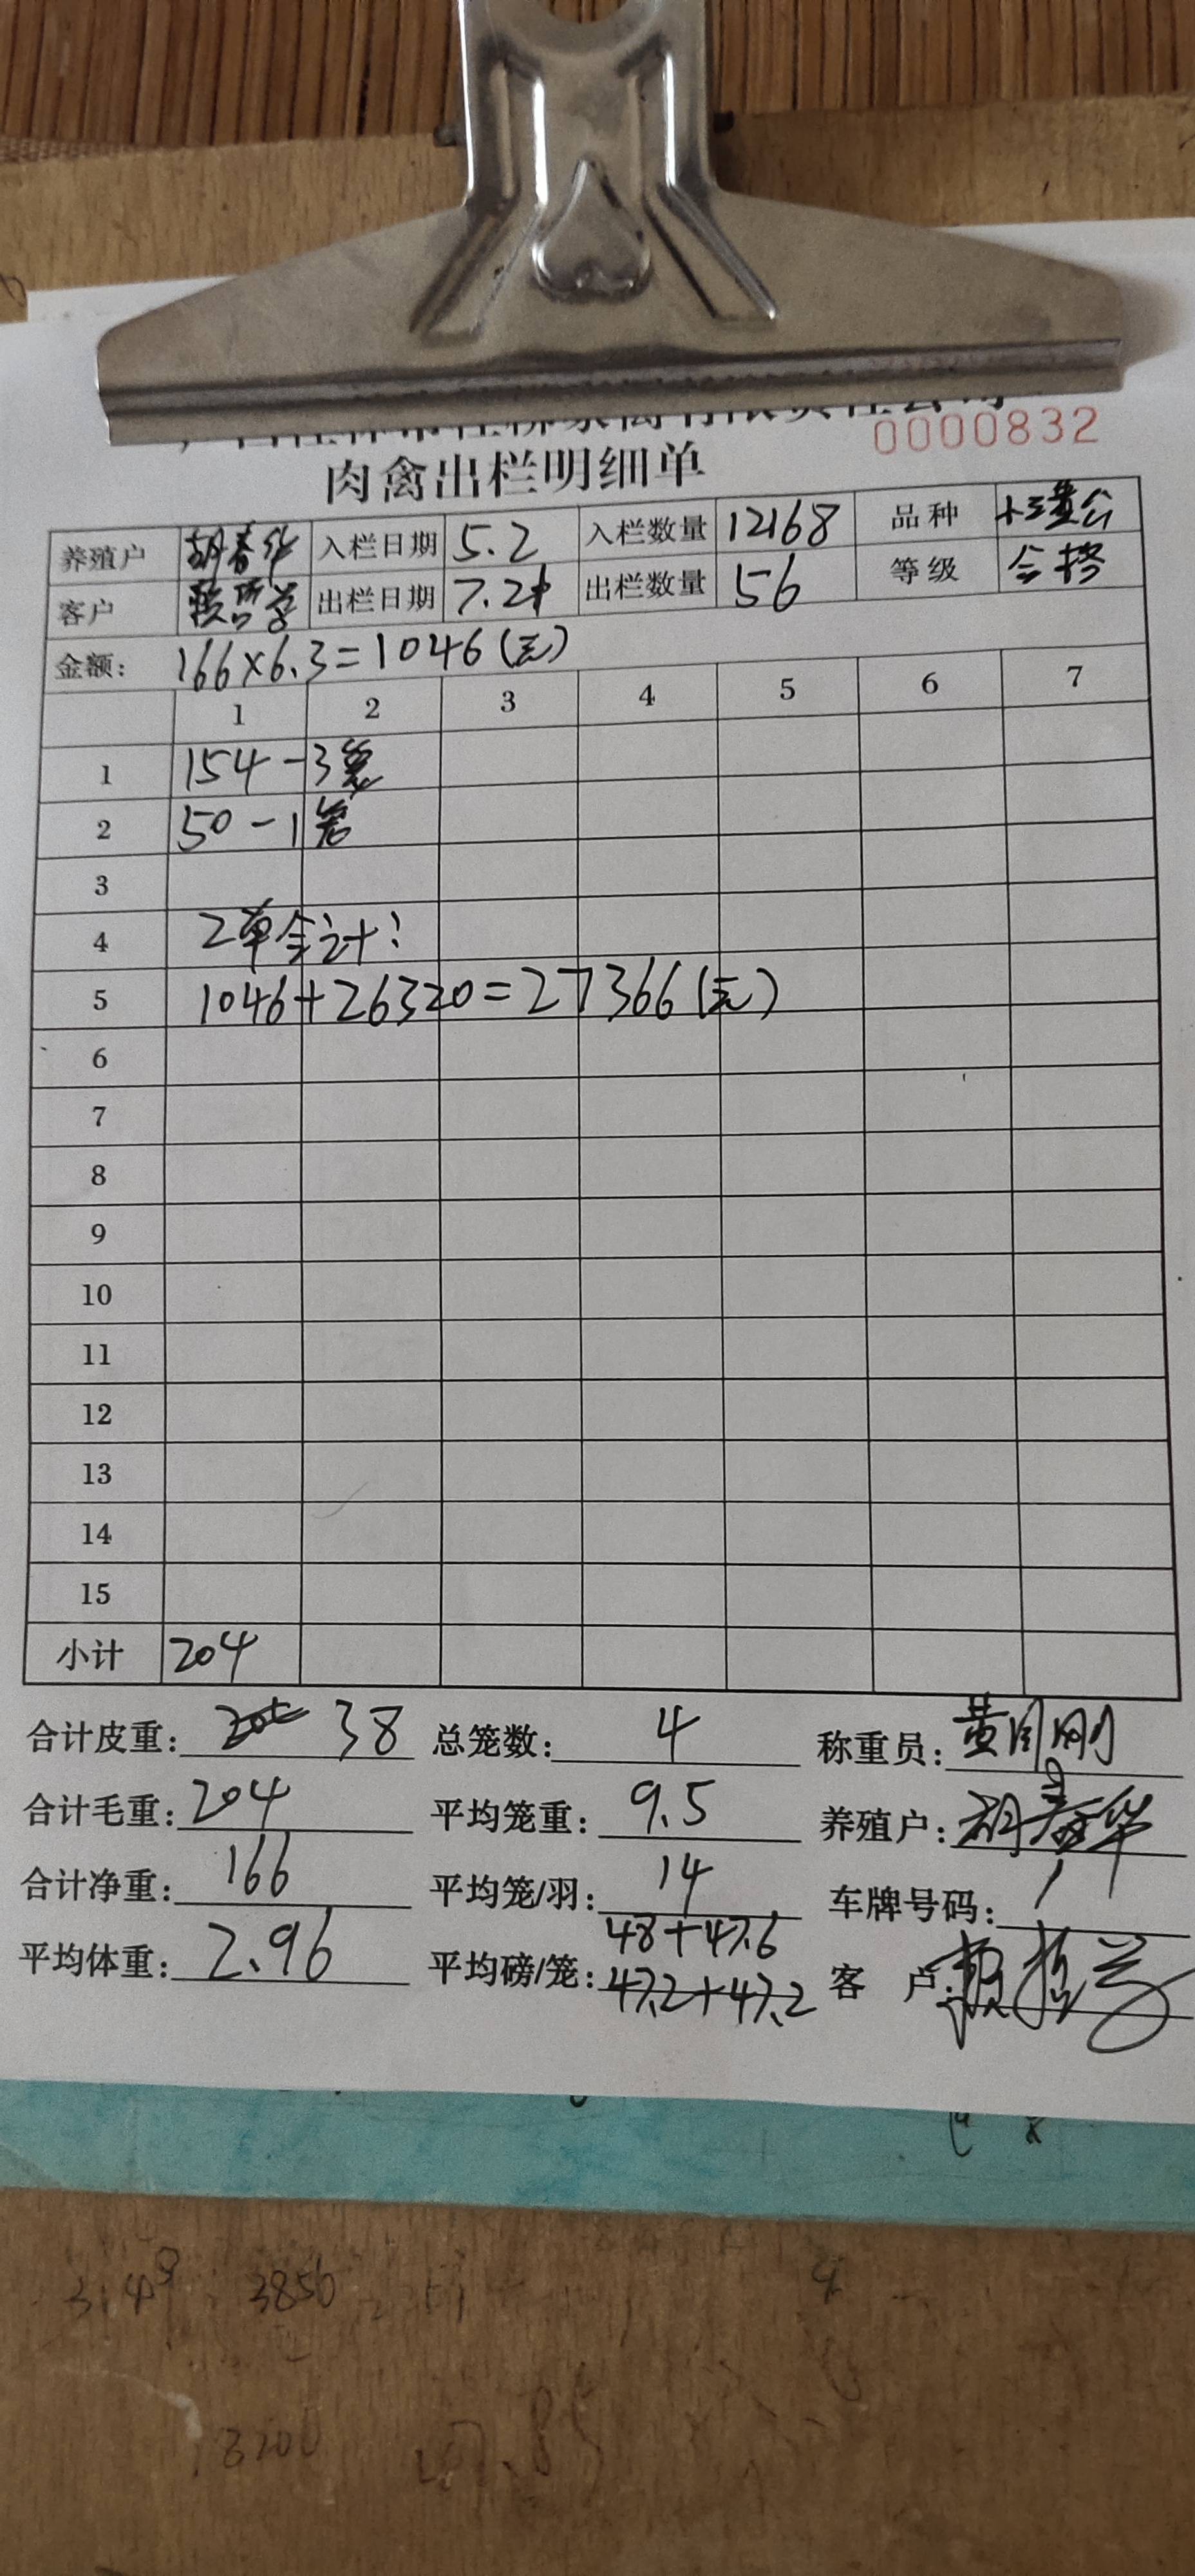 0000832
肉禽出栏明细单
养殖户 胡春华 入栏日期 5.2 入栏数量 12168 品种
客户 出栏日期 出栏数量 56 等级 合格
金额: 166×6.3=1046(元)
1 2 3 4 5 6 7
1 154-3笼
2 50-1笼
3
4 2单合计:
5 1046+26320=27366(元)
6
7
8
9
10
11
12
13
14
15
小计 204
合计皮重: 38 总笼数: 4 称重员:
合计毛重: 204 平均笼重: 9.5 养殖户: 胡春华
合计净重: 166 平均笼/羽: 14 车牌号码: /
48+47.6
平均体重: 2.96 平均磅/笼: 47.2+47.2 客 户:
3850
3200